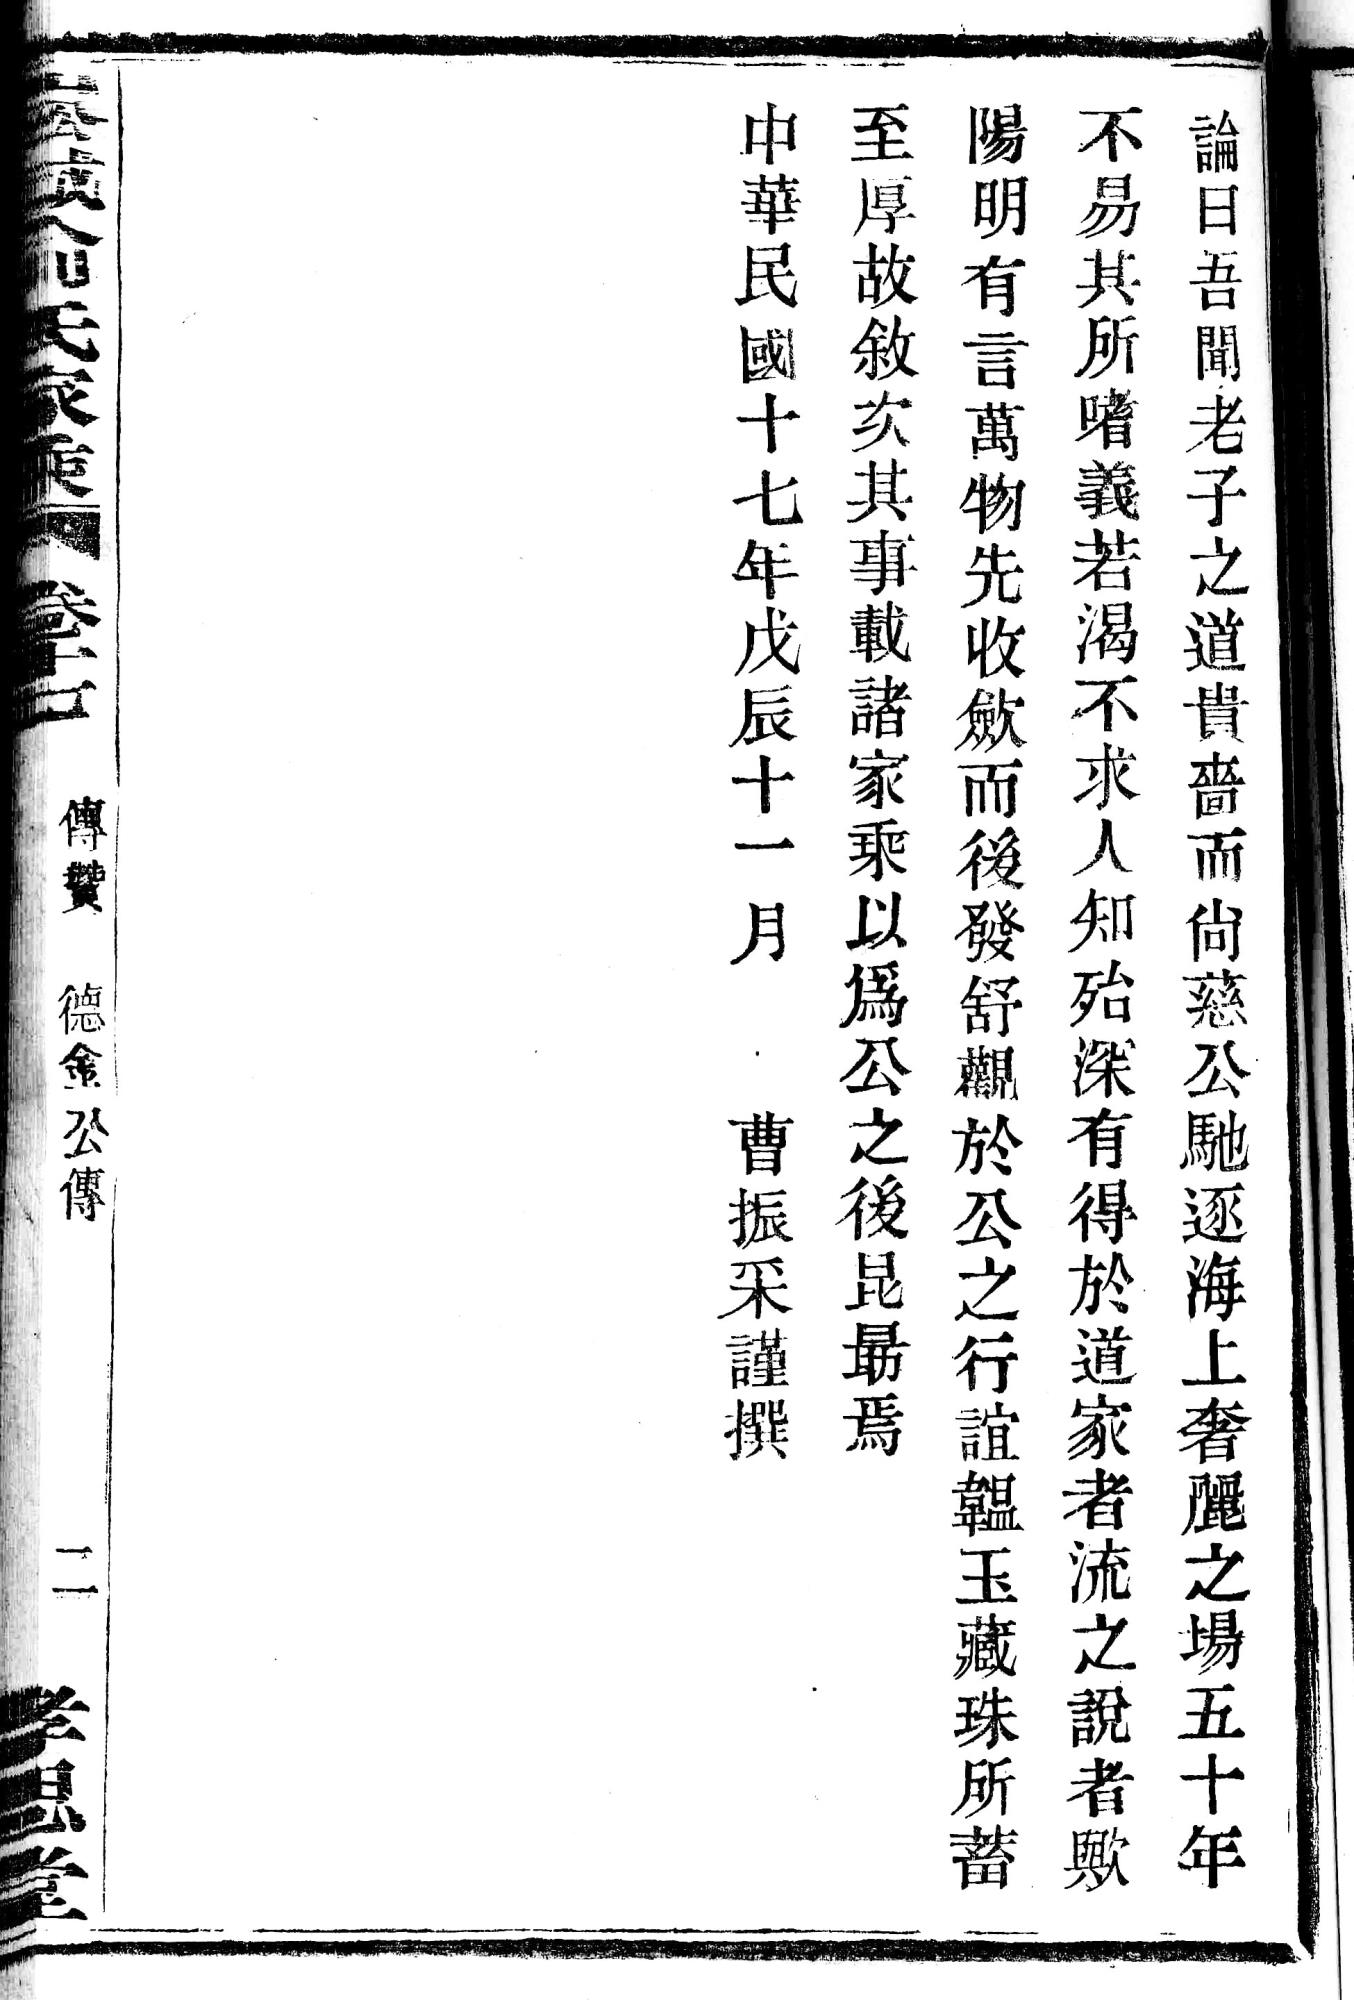 論曰吾聞老子之道貴嗇而尙慈公馳逐海上奢麗之場五十年
不易其所嗜義若渴不求人知殆深有得於道家者流之說者歟
陽明有言萬物先收斂而後發舒觀於公之行誼韞玉藏珠所蓄
至厚故敘次其事載諸家乘以爲公之後昆勗焉
中華民國十七年戊辰十一月　曹振采謹撰
氏家乘 卷十一 傳贊 德金公傳 二 孝思堂